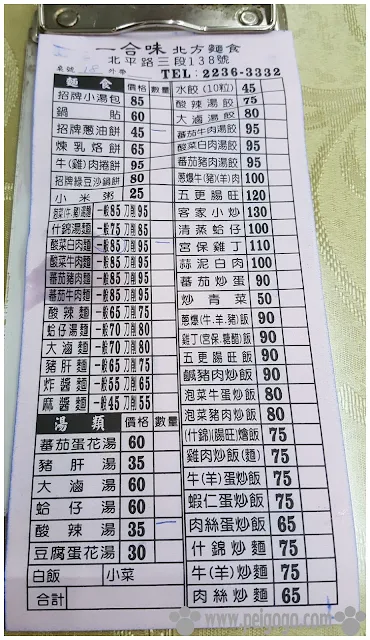 一合味 北方麵食
北平路三段138號
桌號 外帶 TEL:2236-3332
麵食 價格 數量
招牌小湯包 85
鍋貼 60
招牌蔥油餅 45
煉乳烙餅 65
牛(雞)肉捲餅 95
招牌綠豆沙鍋餅 80
小米粥 25
一般85 刀削95
什錦湯麵 一般75 刀削85
酸菜白肉麵 一般85 刀削95
酸菜牛肉麵 一般85 刀削95
蕃茄豬肉麵 一般85 刀削95
蕃茄牛肉麵 一般85 刀削95
酸辣麵 一般65 刀削75
蛤仔湯麵 一般70 刀削80
大滷麵 一般70 刀削80
豬肝麵 一般65 刀削75
炸醬麵 一般55 刀削65
麻醬麵 一般45 刀削55
湯類 價格 數量
蕃茄蛋花湯 60
豬肝湯 35
大滷湯 60
蛤仔湯 60
酸辣湯 35
豆腐蛋花湯 30
白飯 小菜
合計
水餃(10粒) 45
酸辣湯餃 75
大滷湯餃 80
蕃茄牛肉湯餃 95
酸菜白肉湯餃 95
蕃茄豬肉湯餃 95
蔥爆牛(豬)(羊)肉 100
五更腸旺 120
客家小炒 130
清蒸蛤仔 100
宮保雞丁 110
蒜泥白肉 100
蕃茄炒蛋 90
炒青菜 50
蔥爆(牛.羊.豬)飯 90
雞丁(宮保.糖醋)飯 90
五更腸旺飯 90
鹹豬肉炒飯 90
泡菜牛蛋炒飯 80
泡菜豬肉炒飯 80
(什錦)(腸旺)燴飯 75
雞肉炒飯(麵) 75
牛(羊)蛋炒飯 75
蝦仁蛋炒飯 75
肉絲蛋炒飯 65
什錦炒麵 75
牛(羊)炒麵 75
肉絲炒麵 65
www.peigogo.com